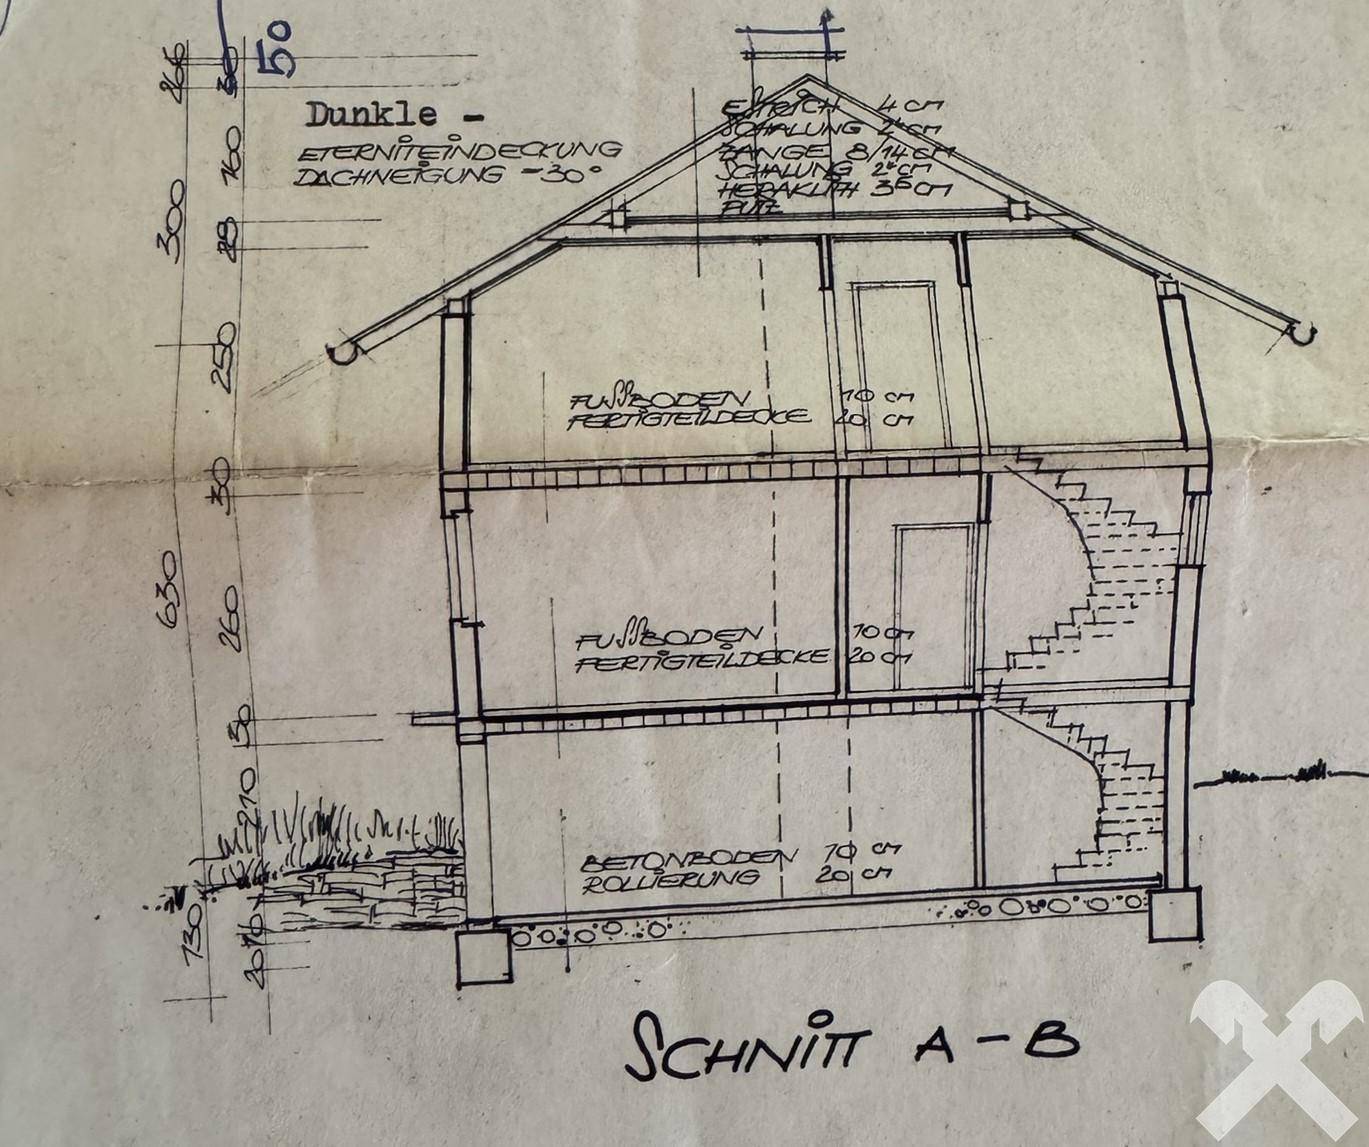 50
Dunkle -
ETERNITEINDECKUNG
DACHNEIGUNG - 30°
ESTRICH 4 cm
SCHALUNG 2⁴ cm
ZANGE 8/14 cm
SCHALUNG 2⁴ cm
HERAKLITH 3⁵ cm
PUTZ
160
300
28
250
FUßBODEN 10 cm
FERTIGTEILDECKE 20 cm
30
630
260
FUßBODEN 10 cm
FERTIGTEILDECKE 20 cm
30
210
BETONBODEN 10 cm
ROLLIERUNG 20 cm
130
20 10
SCHNITT A - B